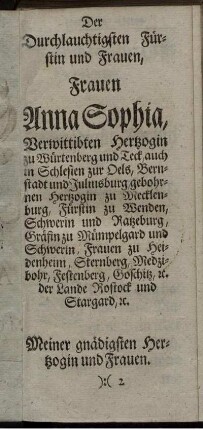 Der
Durchlauchtigsten Für-
stin und Frauen,
Frauen
Anna Sophia,
Verwittibten Hertzogin
zu Würtenberg und Teck, auch
in Schlesien zur Oels, Bern-
stadt und Juliusburg gebohr-
nen Hertzogin zu Mecklen-
burg, Fürstin zu Wenden,
Schwerin und Ratzeburg,
Gräfin zu Mümpelgard und
Schwerin, Frauen zu Hei-
denheim, Sternberg, Medzi-
bohr, Festenberg, Goschitz, ꝛc.
der Lande Rostock und
Stargard, ꝛc.
Meiner gnädigsten Her-
tzogin und Frauen.
):( 2